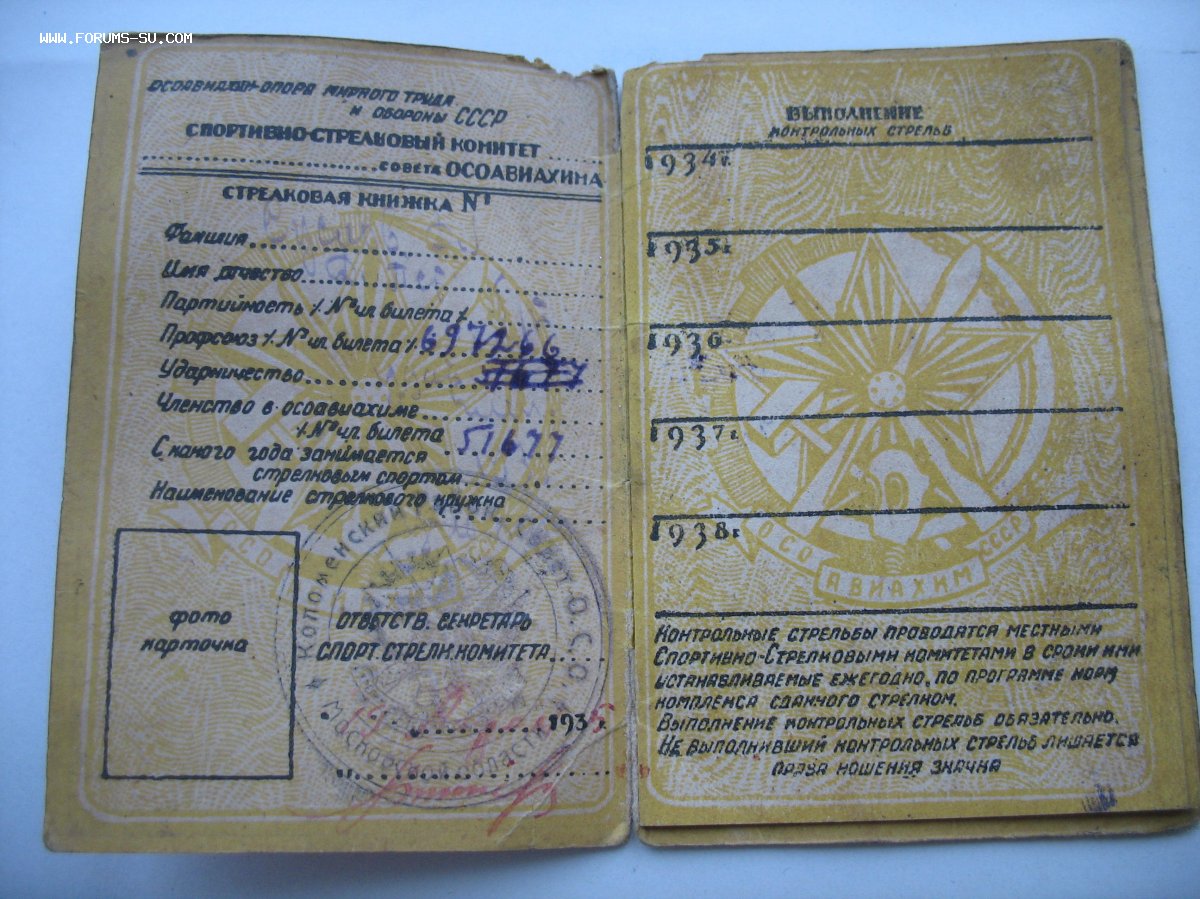 www.forums-su.com
ОСОАВИАХИМ-ОПОРА МИРНОГО ТРУДА
И ОБОРОНЫ СССР
СПОРТИВНО-СТРЕЛКОВЫЙ КОМИТЕТ
СОВЕТА ОСОАВИАХИМА
СТРЕЛКОВАЯ КНИЖКА №
Фамилия
Имя отчество
Партийность % № чл. билета %
Профсоюз % № чл. билета % 697266
Ударничество
Членство в осоавиахиме
% № чл. билета 51677
С какого года занимается
стрелковым спортом
Наименование стрелкового кружка
фото
карточка
ОТВЕТСТВ. СЕКРЕТАРЬ
СПОРТ. СТРЕЛК. КОМИТЕТА
1935
Коломенский О.С.О. Московской области
ВЫПОЛНЕНИЕ
КОНТРОЛЬНЫХ СТРЕЛЬБ
1934г.
1935г
1936
1937г
1938г
ОСО АВИАХИМ СССР
Контрольные стрельбы проводятся местными
Спортивно-Стрелковыми комитетами в сроки ими
устанавливаемые ежегодно, по программе норм
комплекса сданного стрелком.
Выполнение контрольных стрельб обязательно.
Не выполнивший контрольных стрельб лишается
права ношения значка